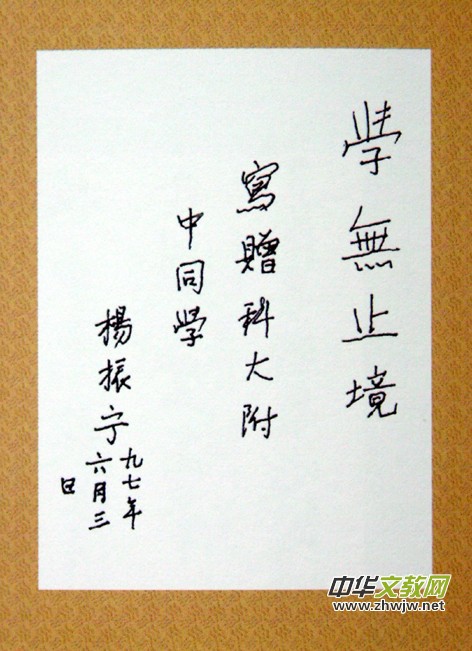 學無止境
寫贈科大附
中同學
楊振宁
九七年
六月三
日
中华文教网
www.zhwjw.net